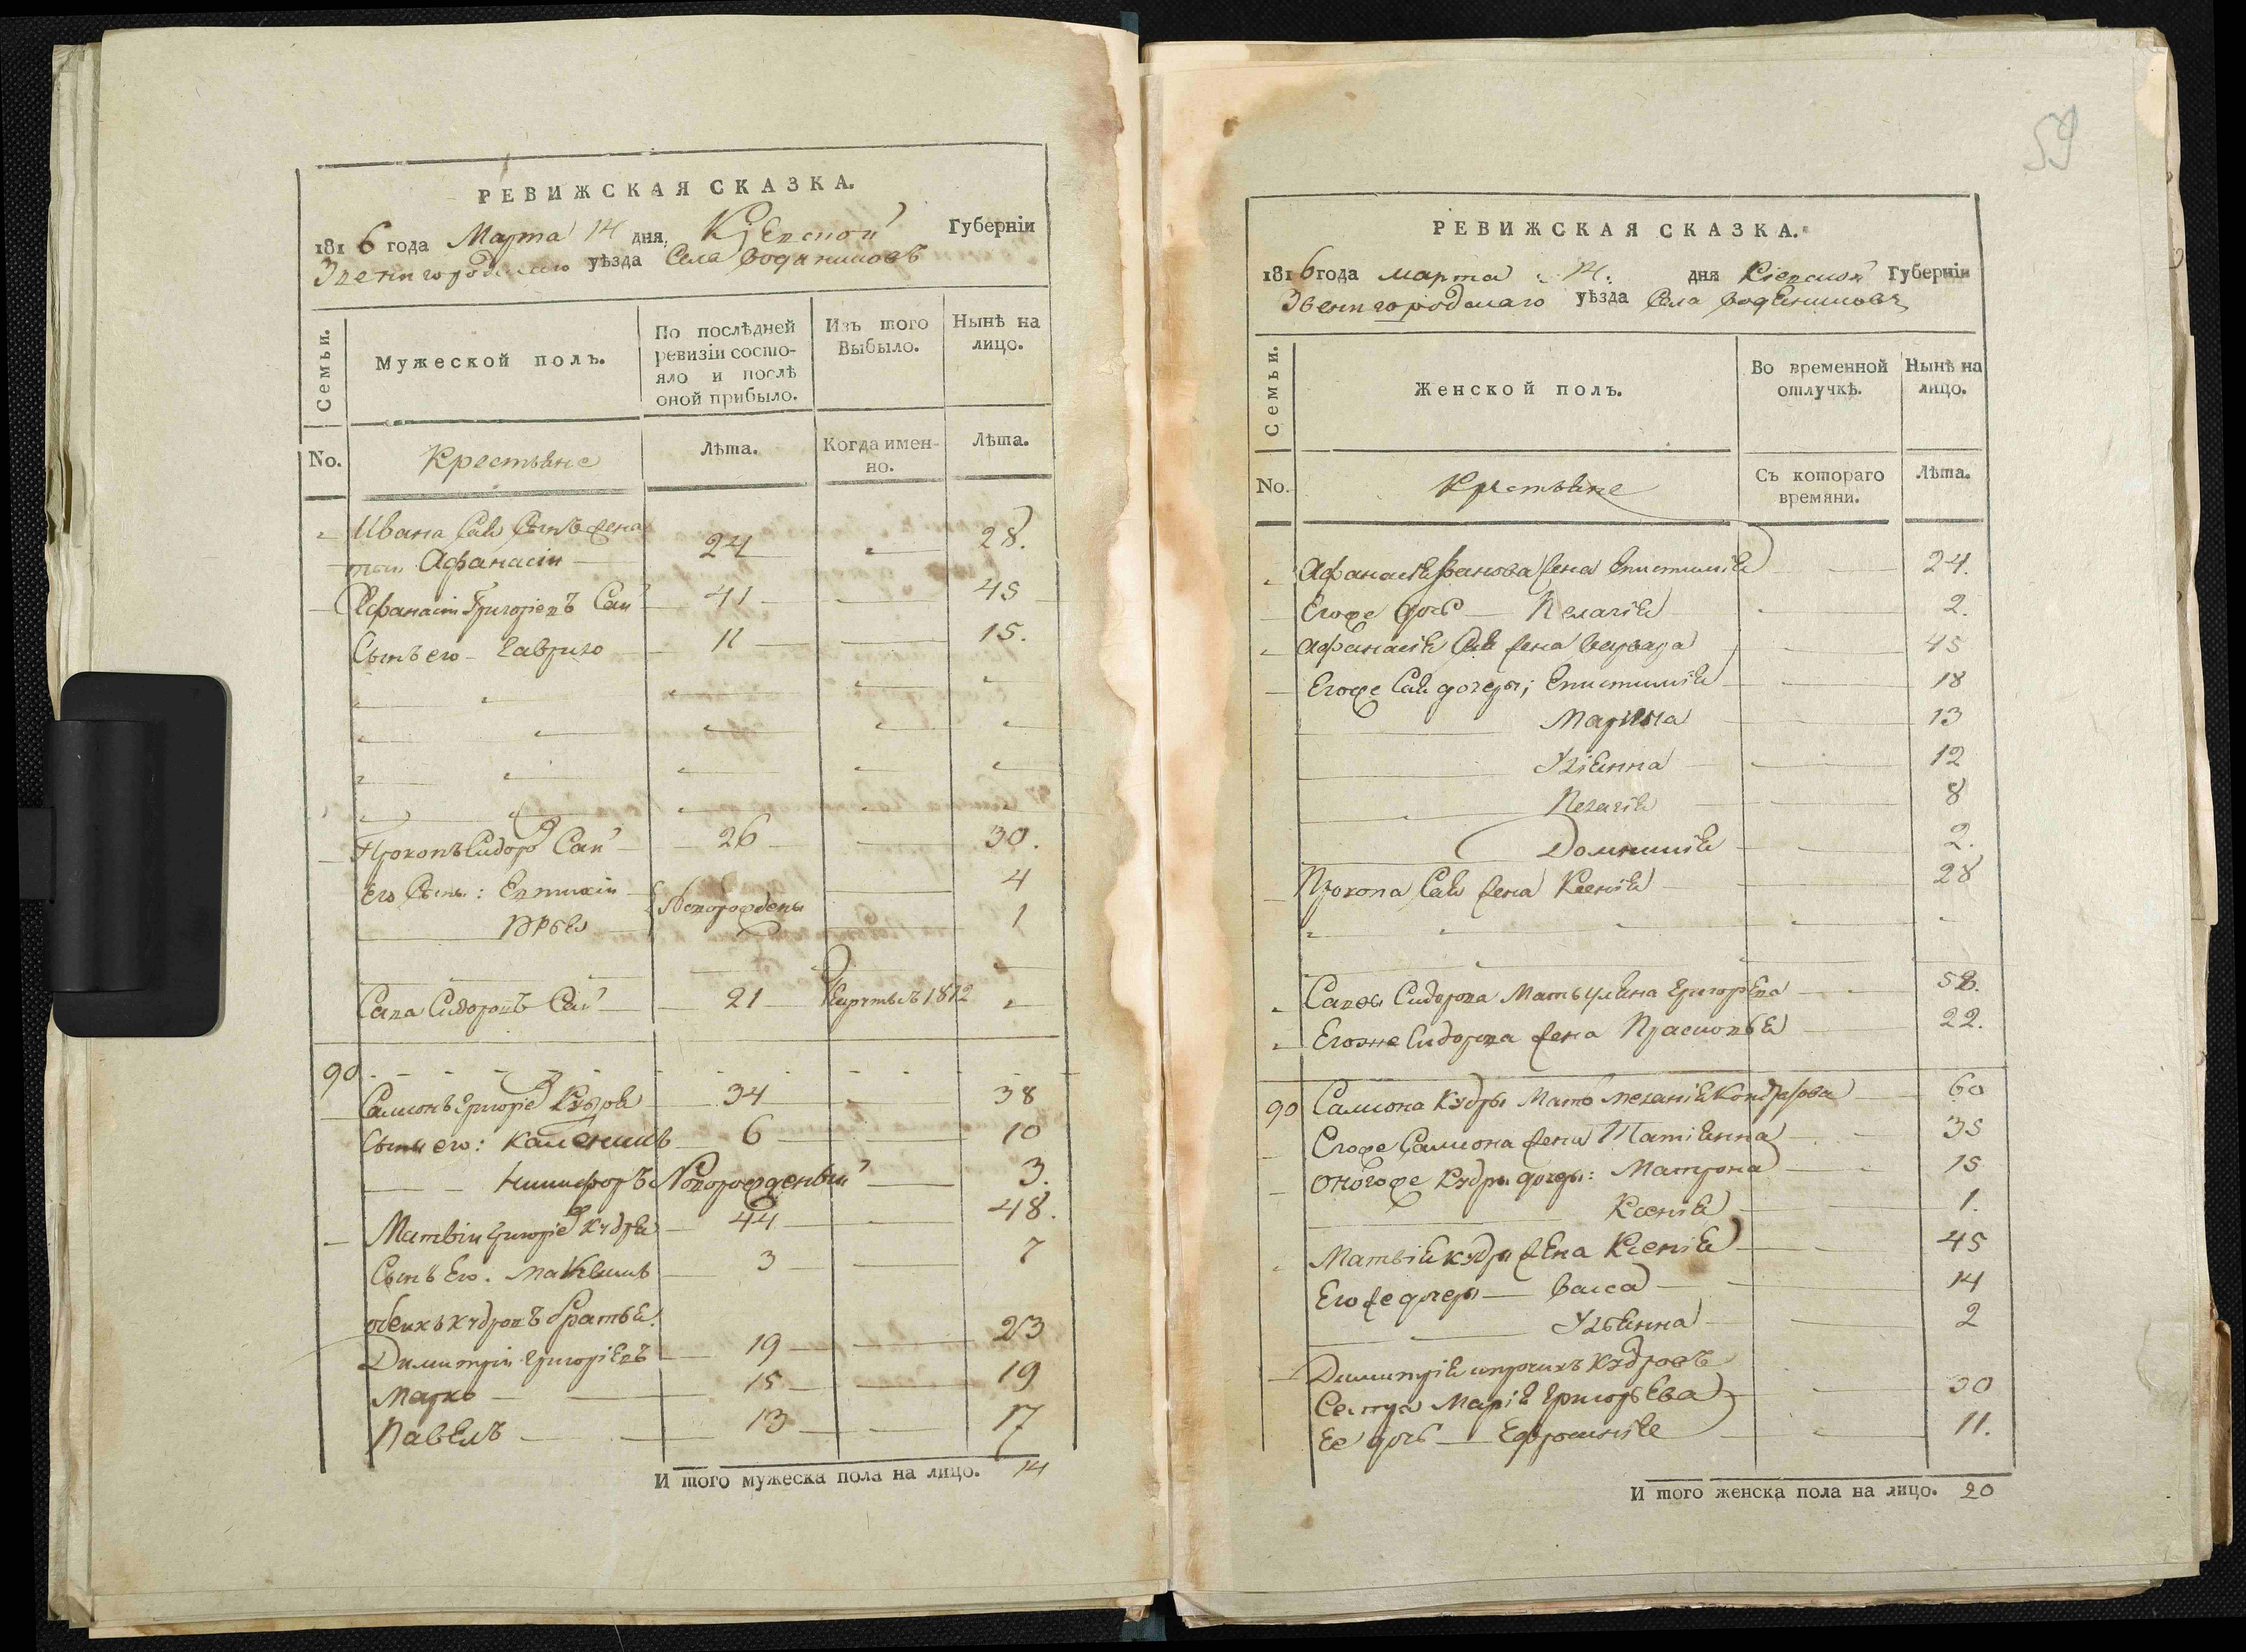 РЕВИЖСКАЯ СКАЗКА.
1816 года Марта 14 дня, Кіевской Губерніи
Звенигородскаго уѣзда Села Водяниковъ
Семьи.
Мужеской полъ.
По послѣдней ревизіи состо-
яло и послѣ
оной прибыло.
Изъ того
Выбыло.
Нынѣ на
лицо.
No.
Крестьяне
Лѣта.
Когда имен-
но.
Лѣта.
Ивана Сая Сынъ
Афанасіи 24 28.
Афанасіи Григоріевъ Сай 41 45
Сынъ его Гаврило 11 15.
Прокопъ Сидоро Сай 26 30.
Его Сыны: Евтихіи Новорождены 4
1
Сава Сидоровъ Сай 21 1812
90
Самионъ Григоріе Кудра 34 38
Сыны его: 6 10
Никифоръ Новорожденый 3.
Матвіи Григоріе Кудря 44 48.
Сынъ Его. Максимъ 3 7
обеихъ Кудровъ братья.
Димитріи Григоріевъ 19 23
Марко 15 19
Павелъ 13 17
И того мужеска пола на лицо. 14
59
РЕВИЖСКАЯ СКАЗКА.
1816 года марта 14. дня Кіевской Губерніи
Звенигородскаго уѣзда Села Водяниковъ
Семьи.
Женской полъ.
Во временной
отлучкѣ.
Нынѣ на
лицо.
No.
Крестьяне
Съ котораго
времяни.
Лѣта.
Афанасія Иванова жена Епистимія 24.
Егоже дочь Пелагія 2.
Афанасія Сая жена Варвара 45
Егоже Сая дочеры; Епистимія 18
Марина 13
Уліянна 12
Пелагія 8
Домникія 2.
Прокопа Сая жена Ксенія 28
Савы Сидорова Мать Уляна Григорьева 58.
Егоже Сидорова жена Прасковья 22.
90 Самиона Кудры Мать Пелагія Кондратова 60
Егоже Самиона жена Татіянна 35
Оногоже Кудры дочеры: Матрона 15
Ксенія 1.
Матвія Кудры жена Ксенія 45
Егоже дочеры Васса 14
Ульянна 2
Димитрія и прочихъ Кудровъ
Сестра Марія Григорьева 30
Ее дочь Ефросинія 11.
И того женска пола на лицо. 20